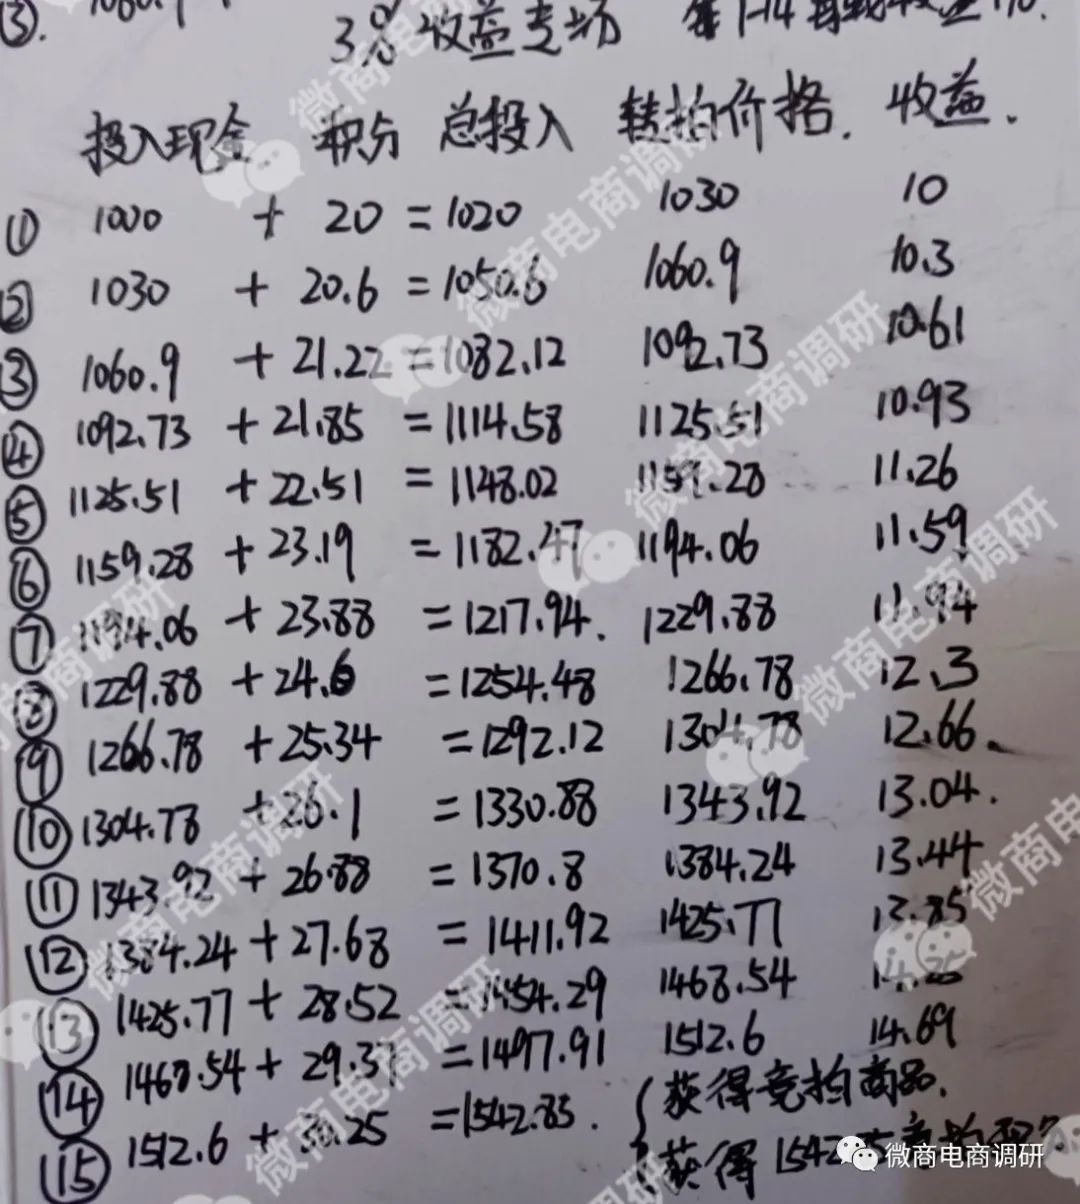 ③.
3% 收益专场 第1-14
投入现金 积分 总投入 转拍价格. 收益.
① 1000 + 20 = 1020 1030 10
② 1030 + 20.6 = 1050.6 1060.9 10.3
③ 1060.9 + 21.22 = 1082.12 1092.73 10.61
④ 1092.73 + 21.85 = 1114.58 1125.51 10.93
⑤ 1125.51 + 22.51 = 1148.02 1159.28 11.26
⑥ 1159.28 + 23.19 = 1182.47 1194.06 11.59
⑦ 1194.06 + 23.88 = 1217.94. 1229.88 11.94
⑧ 1229.88 + 24.6 = 1254.48 1266.78 12.3
⑨ 1266.78 + 25.34 = 1292.12 1304.78 12.66.
⑩ 1304.78 + 26.1 = 1330.88 1343.92 13.04.
⑪ 1343.92 + 26.88 = 1370.8 1384.24 13.44
⑫ 1384.24 + 27.68 = 1411.92 1425.77 13.85
⑬ 1425.77 + 28.52 = 1454.29 1468.54
⑭ 1468.54 + 29.37 = 1497.91 1512.6 14.69
⑮ 1512.6 + 30.25 = 1542.85. 获得竞拍商品.
获得
微商电商调研